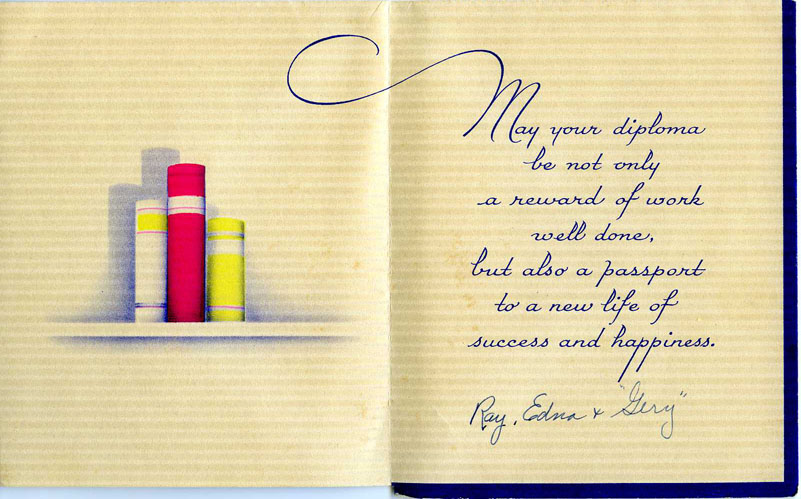 May your diploma
be not only
a reward of work
well done,
but also a passport
to a new life of
success and happiness.
Ray, Edna & "Gery"